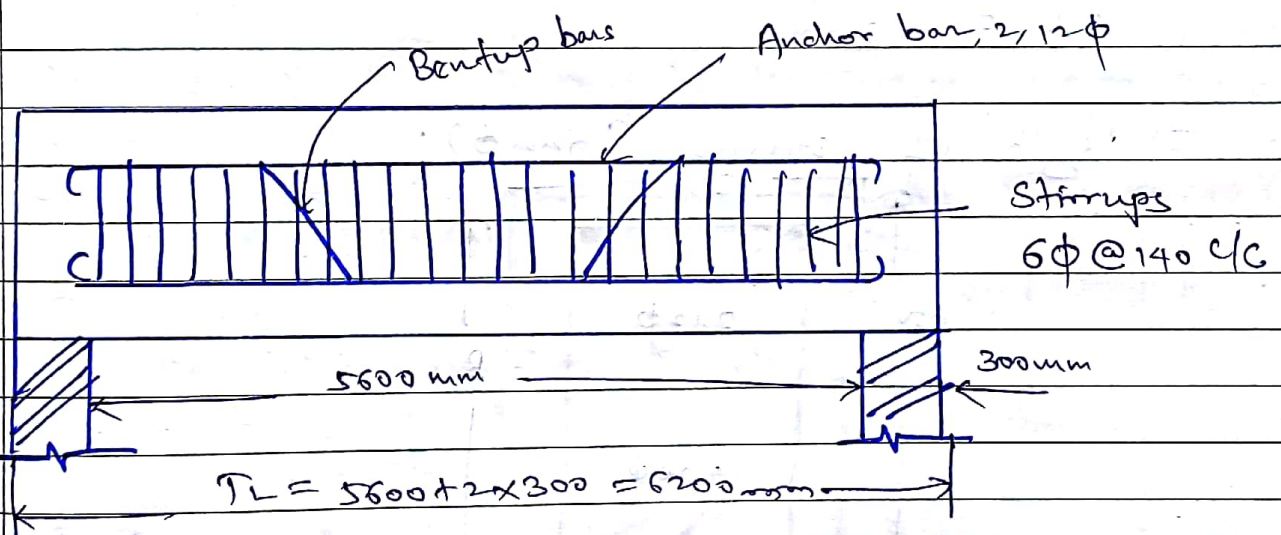 Bentup bars
Anchor bar, 2, 12ϕ
Stirrups
6ϕ @ 140 c/c
5600 mm
300mm
TL = 5600+2×300 = 6200mm